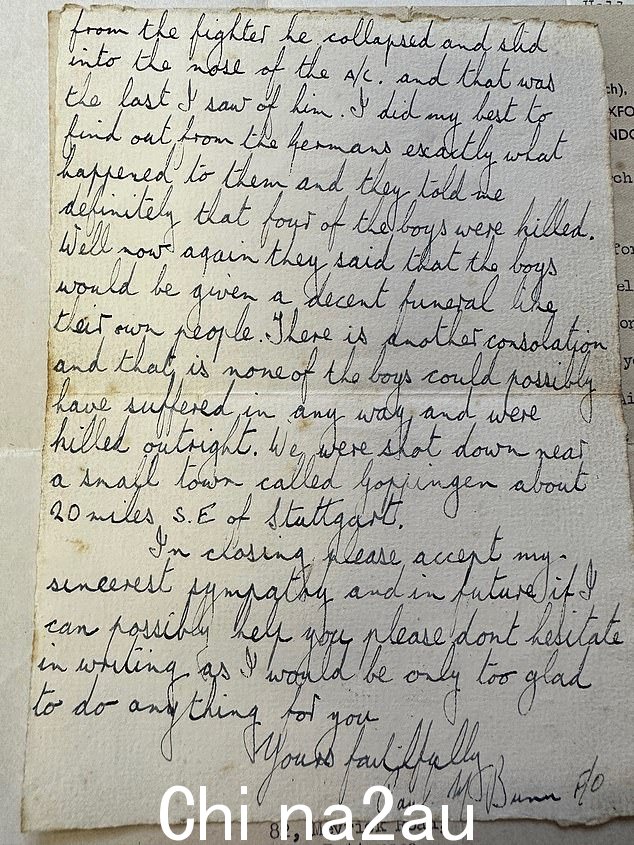 from the fighter he collapsed and slid
into the nose of the a/c. and that was
the last I saw of him. I did my best to
find out from the Germans exactly what
happened to them and they told me
definitely that four of the boys were killed.
Well now again they said that the boys
would be given a decent funeral like
their own people. There is another consolation
and that is none of the boys could possibly
have suffered in any way and were
killed outright. We were shot down near
a small town called Goppingen about
20 miles S.E of Stuttgart.
In closing please accept my
sincerest sympathy and in future if I
can possibly help you please dont hesitate
in writing as I would be only too glad
to do anything for you
Yours faithfully
Bunn F/O
China2au
ch),
XFO
NDO
ch